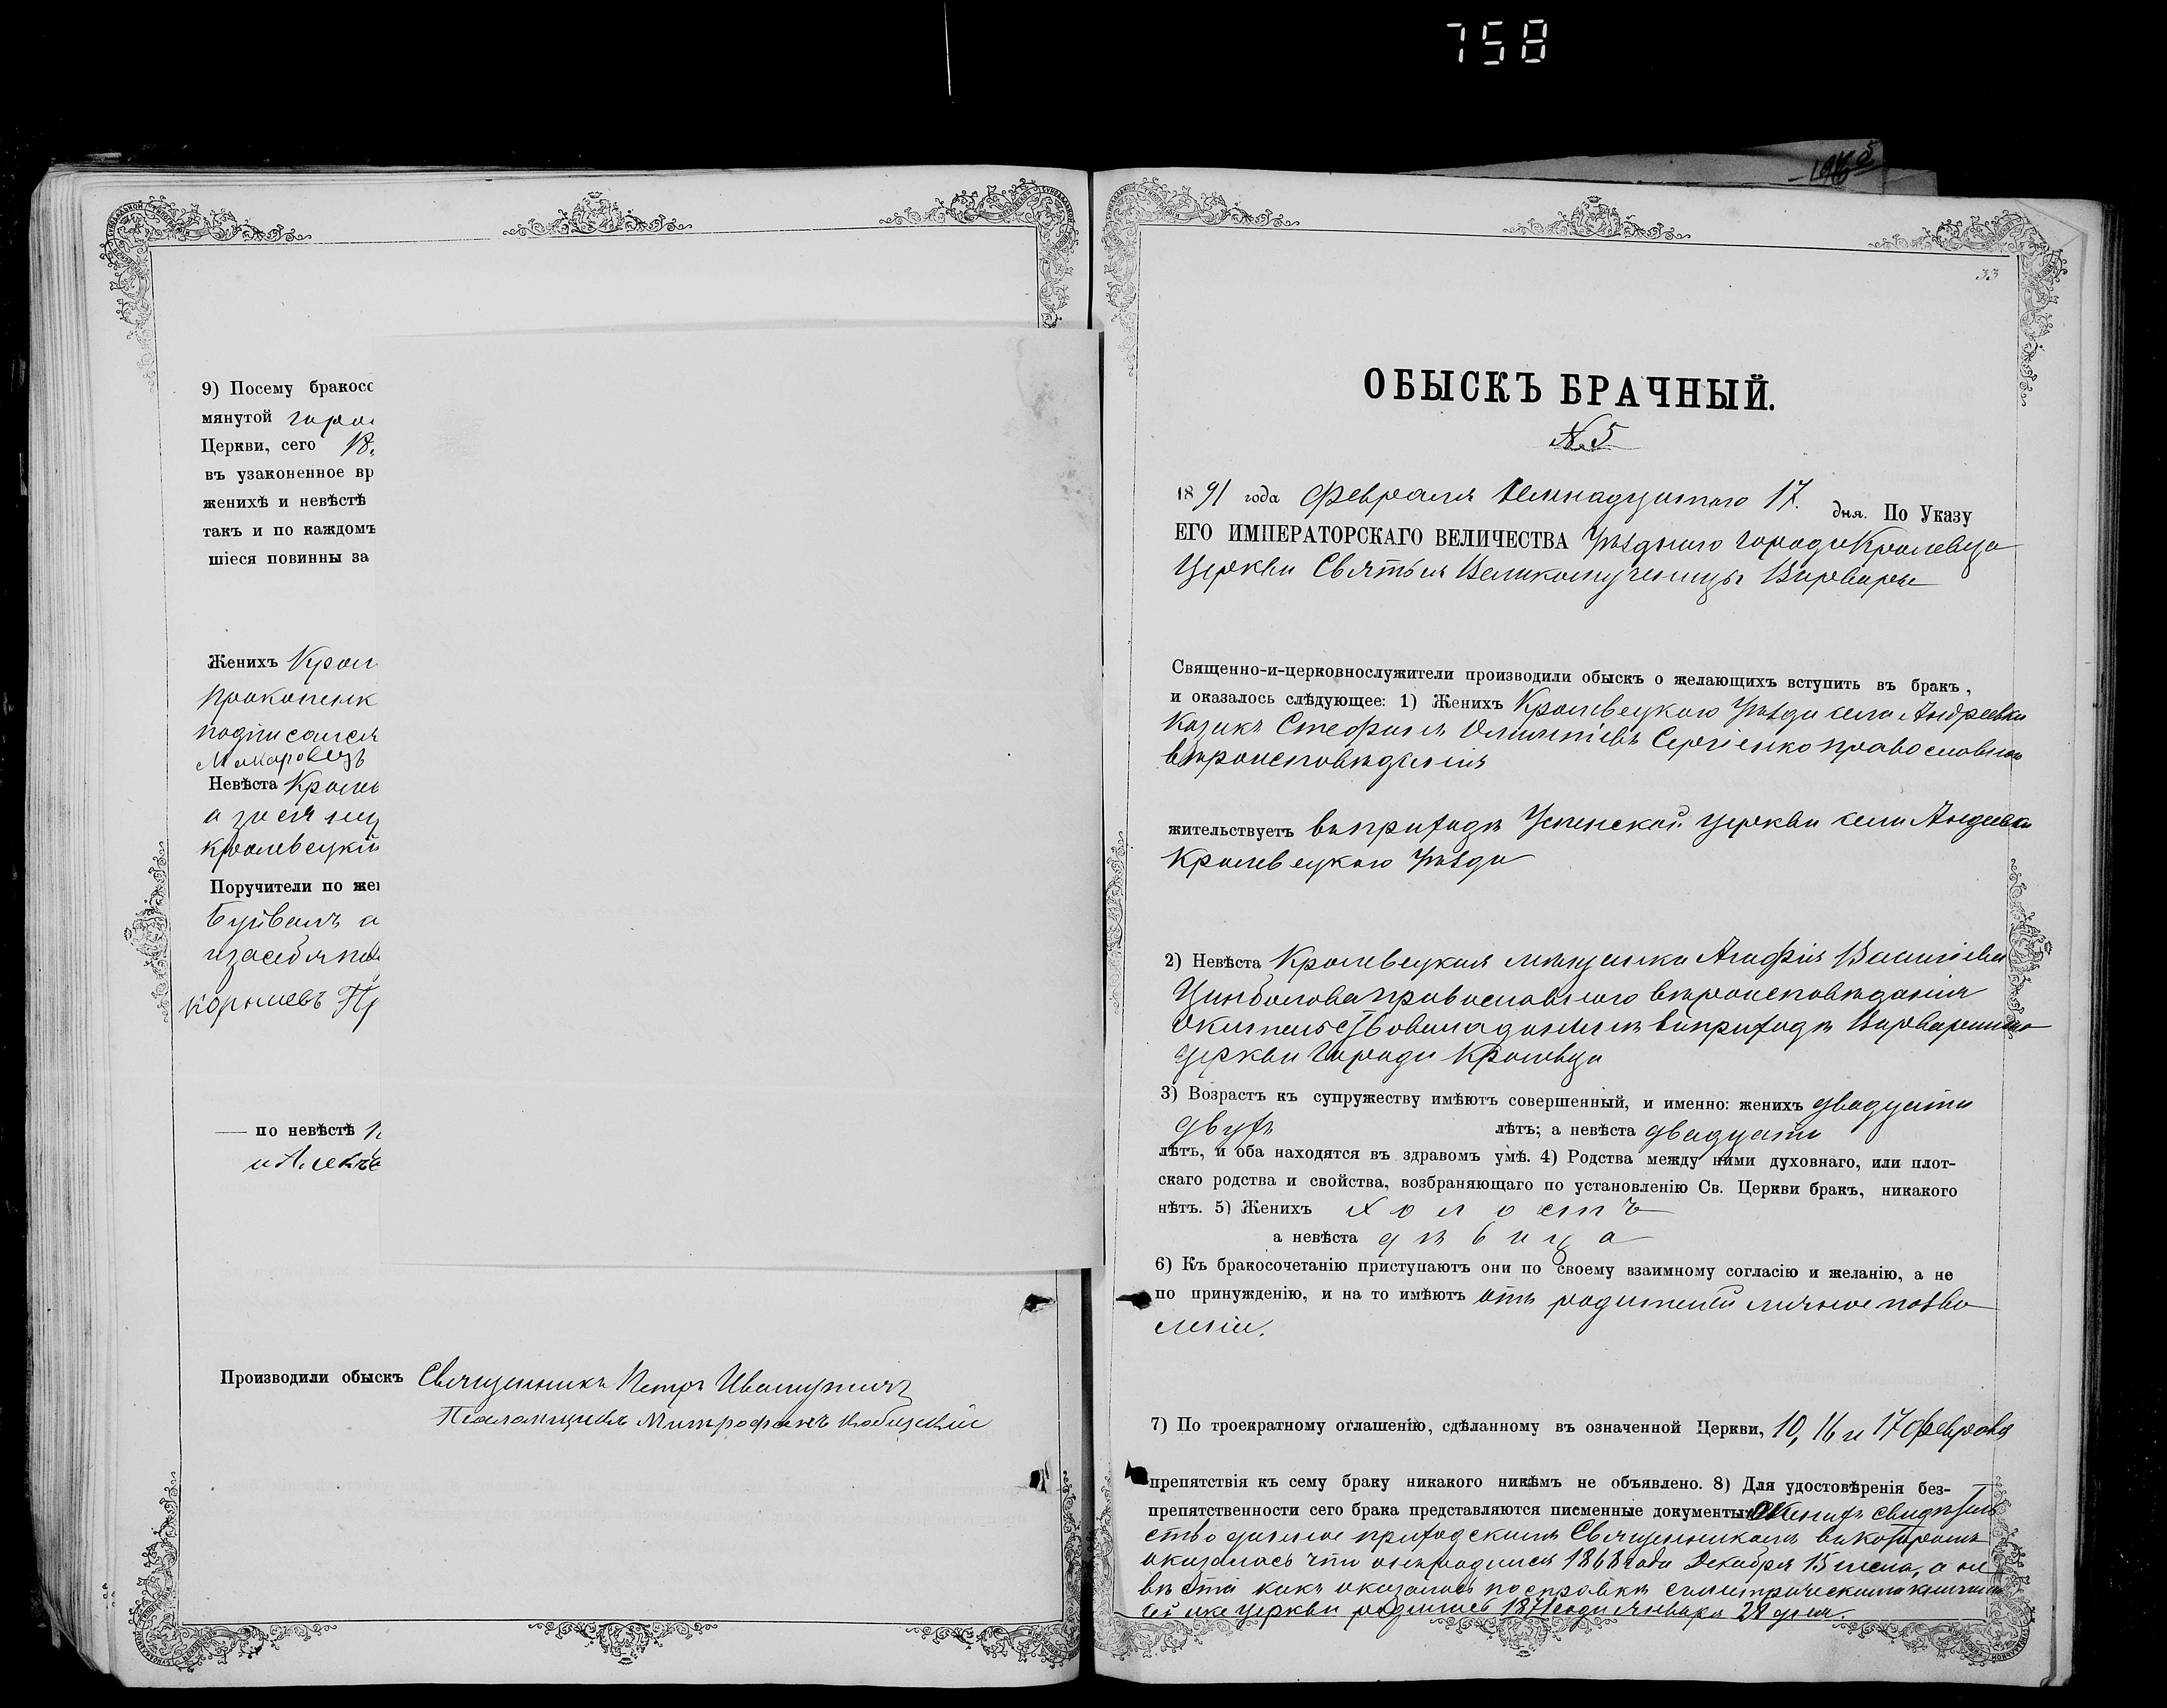 758
1965
9) Посему бракосо
мянутой горо
Церкви, сего 18
въ узаконенное вр
женихѣ и невѣстѣ
такъ и по каждомъ
шіеся повинны за
Женихъ Крол
Прокопенк
подписался
Макаровецъ
Невѣста Кролев
а за ея
кролевецкій
Поручители по жен
Буйвалъ а
и за себя
Пр
по невѣстѣ
и Алекса
Производили обыскъ Священникъ Петръ
Псаломщикъ Митрофанъ
33
ОБЫСКЪ БРАЧНЫЙ.
№ 5
1891 года Февраля Семнадцатаго 17. дня. По Указу
ЕГО ИМПЕРАТОРСКАГО ВЕЛИЧЕСТВА Уѣзднаго города Кролевца
Церкви Святыя Великомученицы Варвары
Священно-и-церковнослужители производили обыскъ о желающихъ вступить въ бракъ,
и оказалось слѣдующее: 1) Женихъ Кролевецкаго Уѣзда села Андреевки
Козакъ Стефанъ Сергіенко православнаго
вѣроисповѣданія
жительствуетъ въ приходѣ Успенской церкви села Андеевки
Кролевецкаго Уѣзда
2) Невѣста Кролевецкая мѣщанка Агафія Василіева
Цинбалова православнаго вѣроисповѣданія
жительствовала донынѣ въ приходѣ Варваринской
церкви города Кролевца
3) Возрастъ къ супружеству имѣютъ совершенный, и именно: женихъ двадцати
двухъ лѣтъ; а невѣста двадцати
лѣтъ, и оба находятся въ здравомъ умѣ. 4) Родства между ними духовнаго, или плот-
скаго родства и свойства, возбраняющаго по установленію Св. Церкви бракъ, никакого
нѣтъ. 5) Женихъ холостъ
а невѣста дѣвица
6) Къ бракосочетанію приступаютъ они по своему взаимному согласію и желанію, а не
по принужденію, и на то имѣютъ отъ родителей личное позво
леніе.
7) По троекратному оглашенію, сдѣланному въ означенной Церкви, 10, 16 и 17 февраля
препятствія къ сему браку никакого никѣмъ не объявлено. 8) Для удостовѣренія без-
препятственности сего брака представляются писменные документы: Женихъ свидѣтель
ство данное приходскимъ Священникомъ въ которомъ
оказалось что онъ родился 1868 года Декабря 15 числа, а не
вѣста какъ оказалось по справкѣ съ метрическими книгами
сей же церкви родилась 1871 года Января 28 дня.